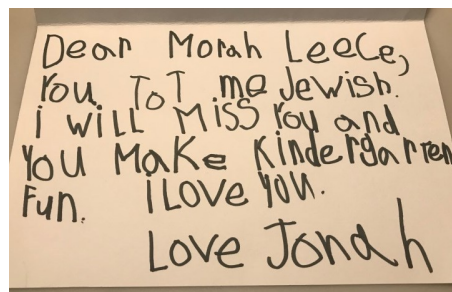 Dear Morah Leece,
You ToT me Jewish.
i will Miss You and
You Make Kindergarren
Fun. I Love You.
Love Jonah